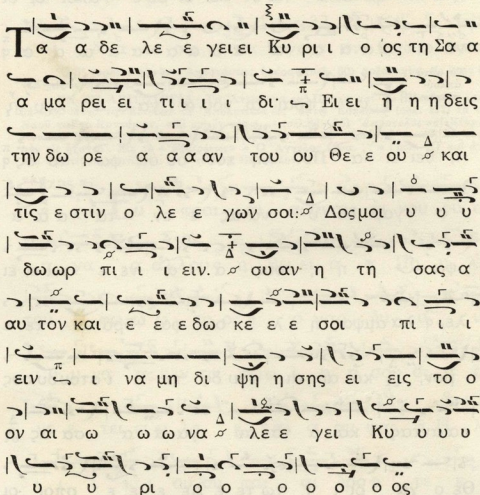 Τα α δε λε ε γει ει Κυ ρι ι ι ος τη Σα α
α μα ρει ει τι ι ι ι δι· Ει ει η η η δεις
την δω ρε α α α αν του ου Θε ε ου και
τις ε στιν ο λε γων σοι· Δος μοι υ υ υ
δω ωρ πι ι ειν. συ αν η τη σας α
αυ τον και ε ε ε δω κε ε ε σοι πι ι
ειν ι να μη δι ψη η σης ει εις το ο
ον αι ω ω ω να λε ε γει Κυ υ υ υ
υ υ ρι ι ο ο ο ο ο ος